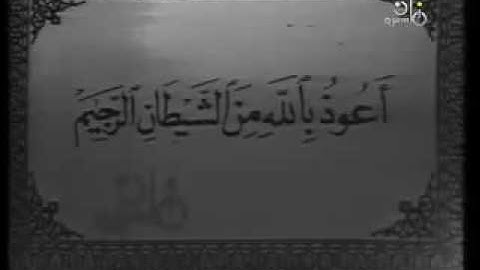 أَعُوذُ بِٱللَّهِ مِنَ ٱلشَّيْطَانِ ٱلرَّجِيمِ